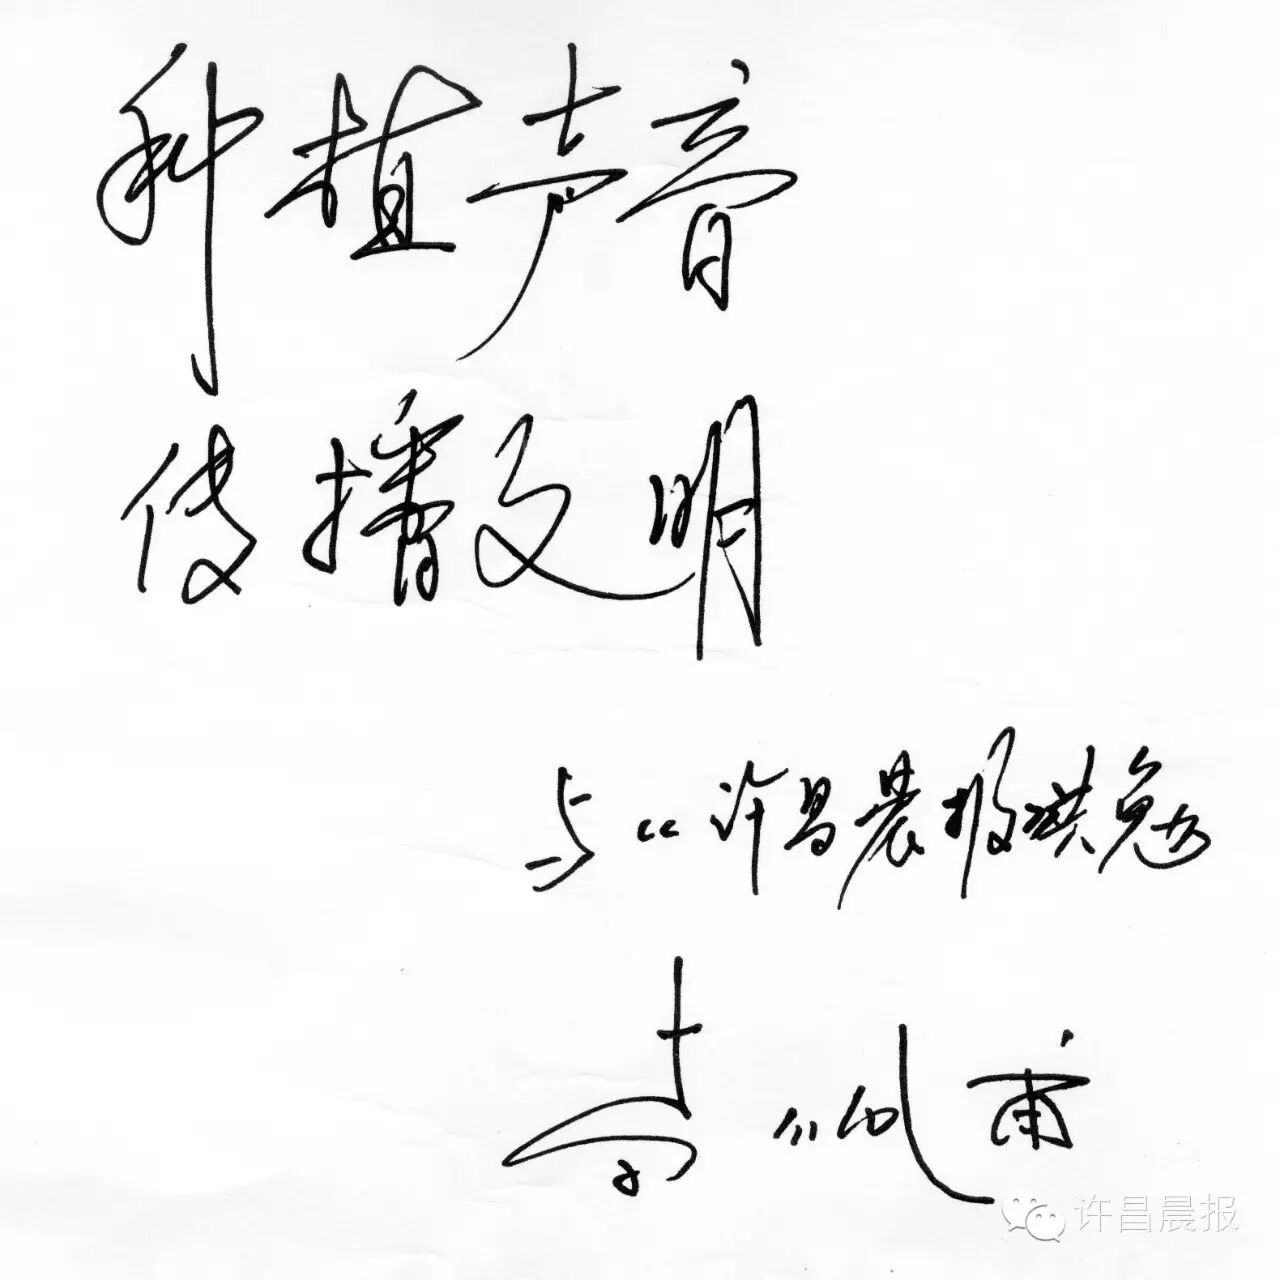 种植声音
传播文明
与“许昌晨报共勉
许昌晨报